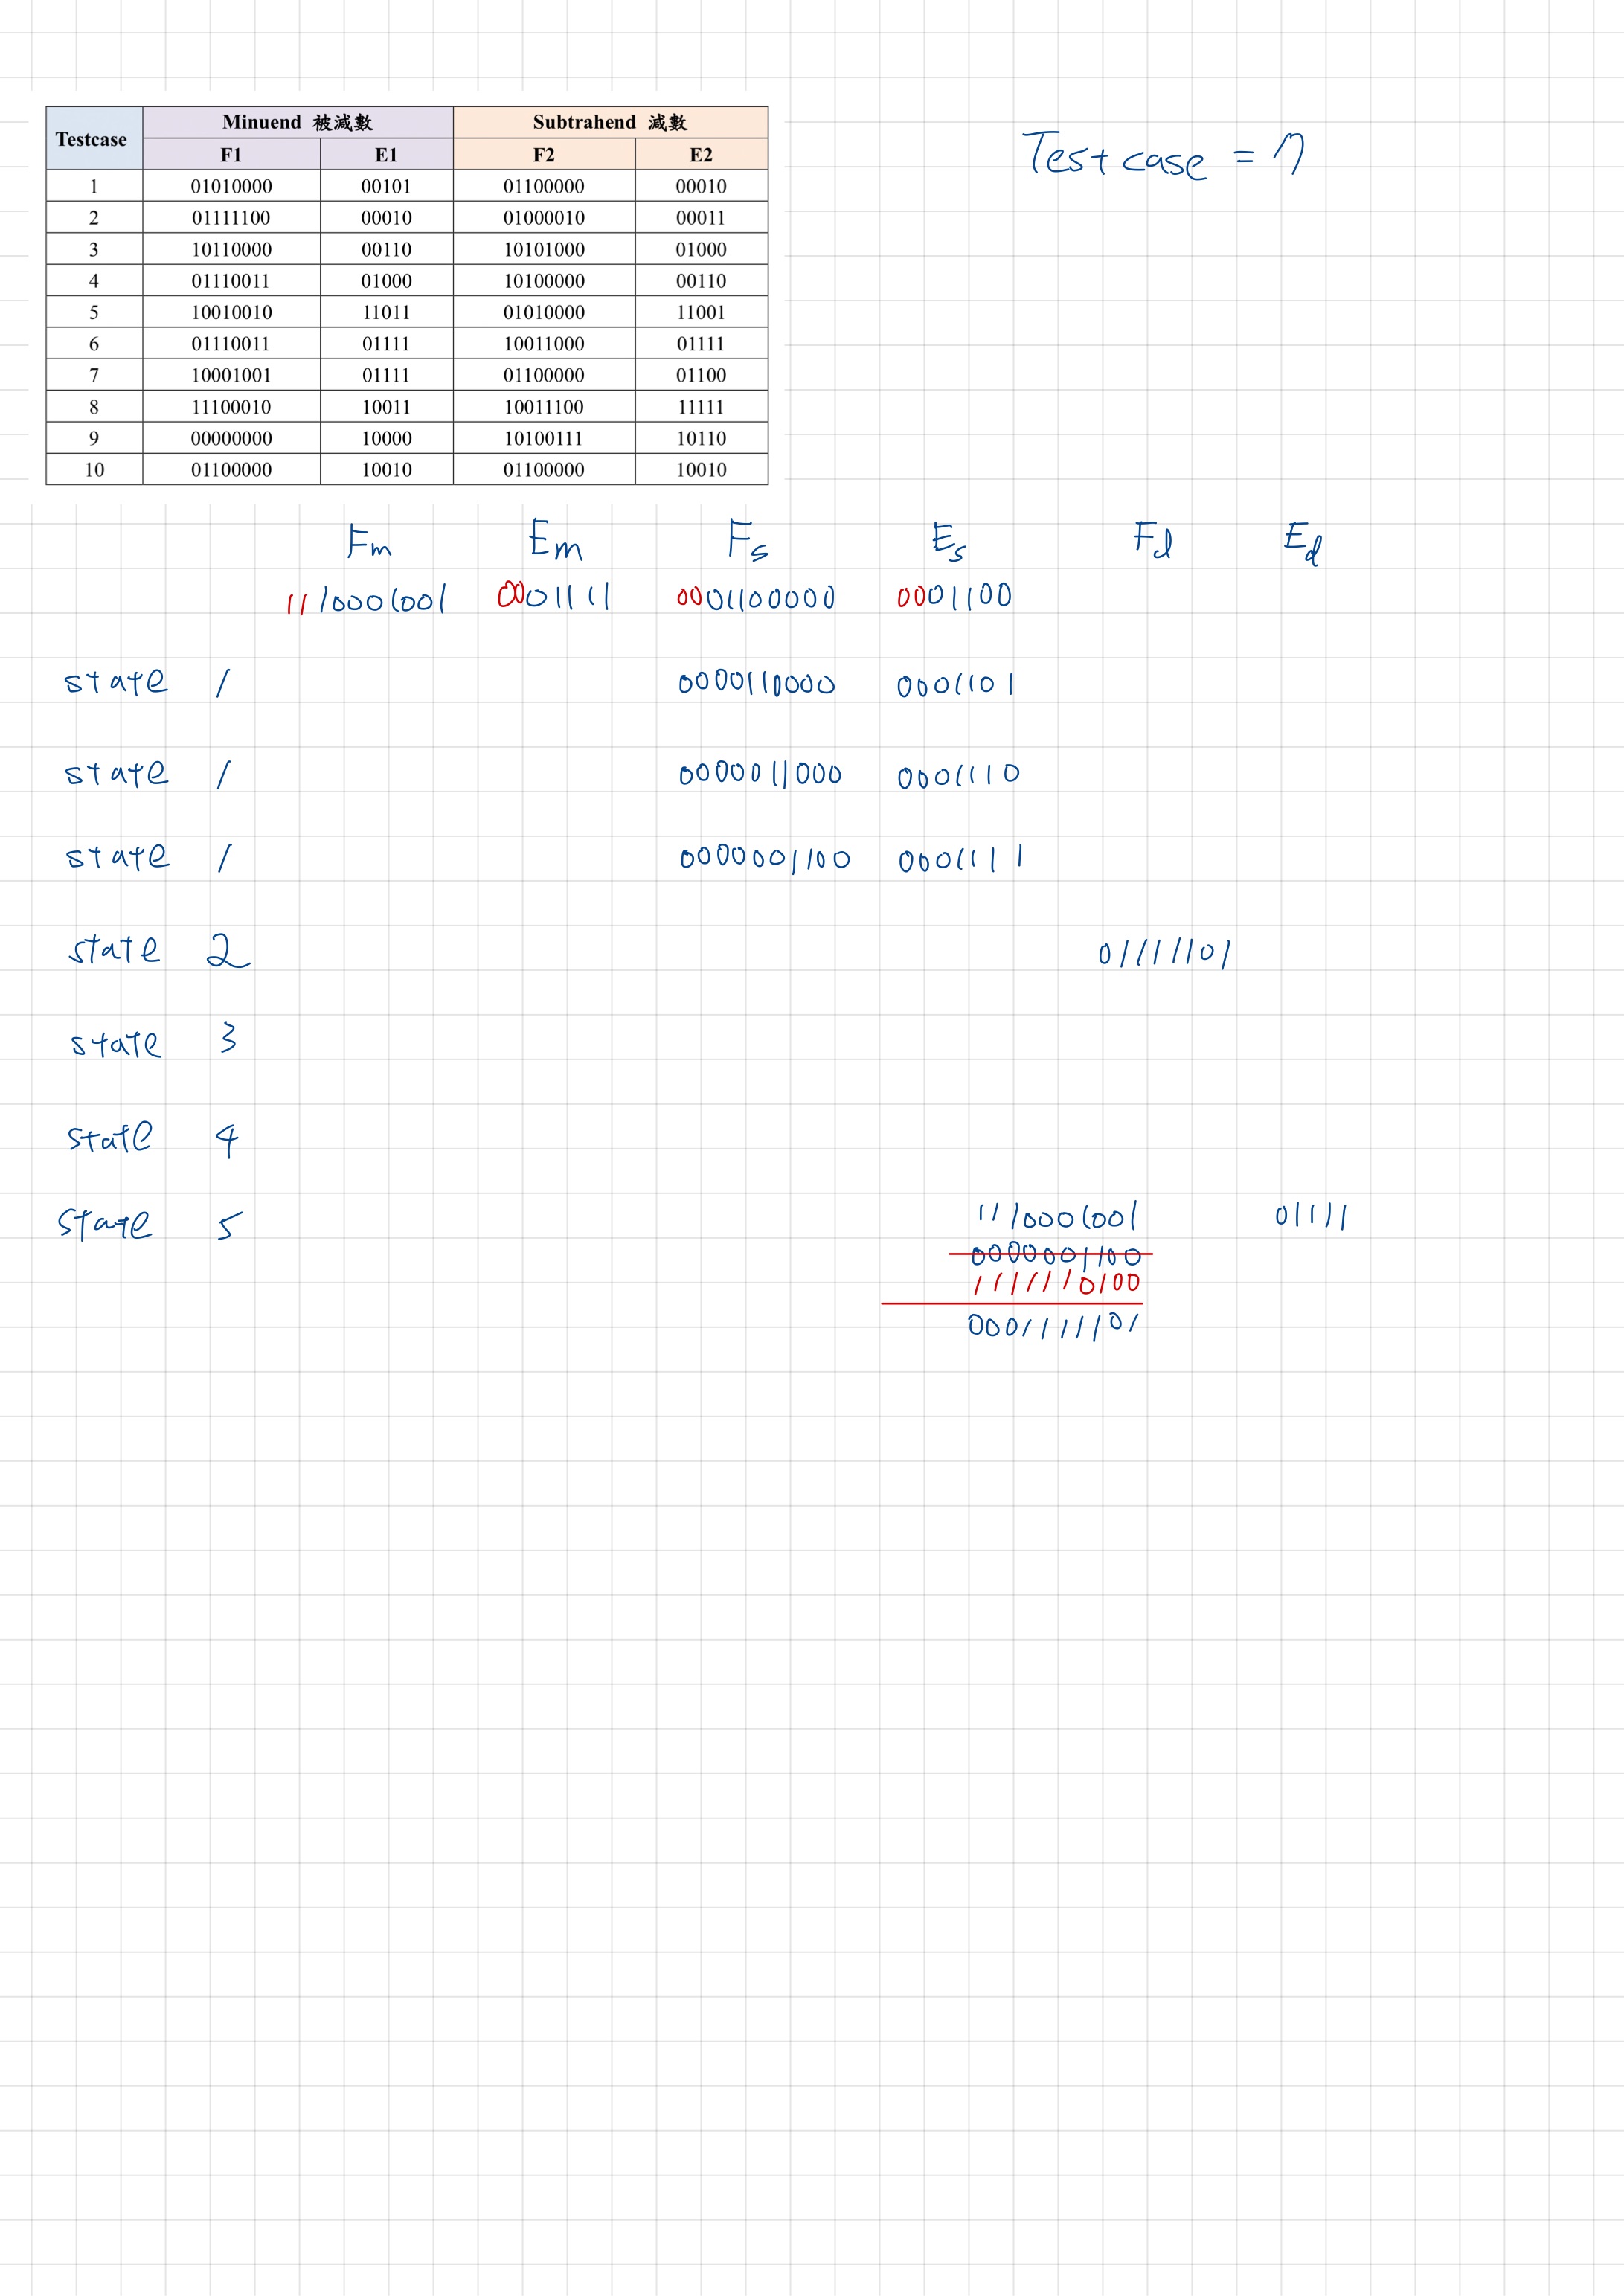 Testcase Minuend 被減數 Subtrahend 減數
F1 E1 F2 E2
1 01010000 00101 01100000 00010
2 01111100 00010 01000010 00011
3 10110000 00110 10101000 01000
4 01110011 01000 10100000 00110
5 10010010 11011 01010000 11001
6 01110011 01111 10011000 01111
7 10001001 01111 01100000 01100
8 11100010 10011 10011100 11111
9 00000000 10000 10100111 10110
10 01100000 10010 01100000 10010
Testcase = 7
Fm Em Fs Es Fd Ed
1110001001 0001111 0001100000 0001100
state 1 0000110000 0001101
state 1 0000011000 0001110
state 1 0000001100 0001111
state 2 01111101
state 3
state 4
state 5 1110001001 01111
0000001100
1111110100
0001111101